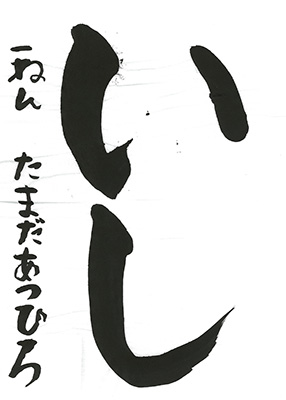 いし
一ねん たまだあつひろ